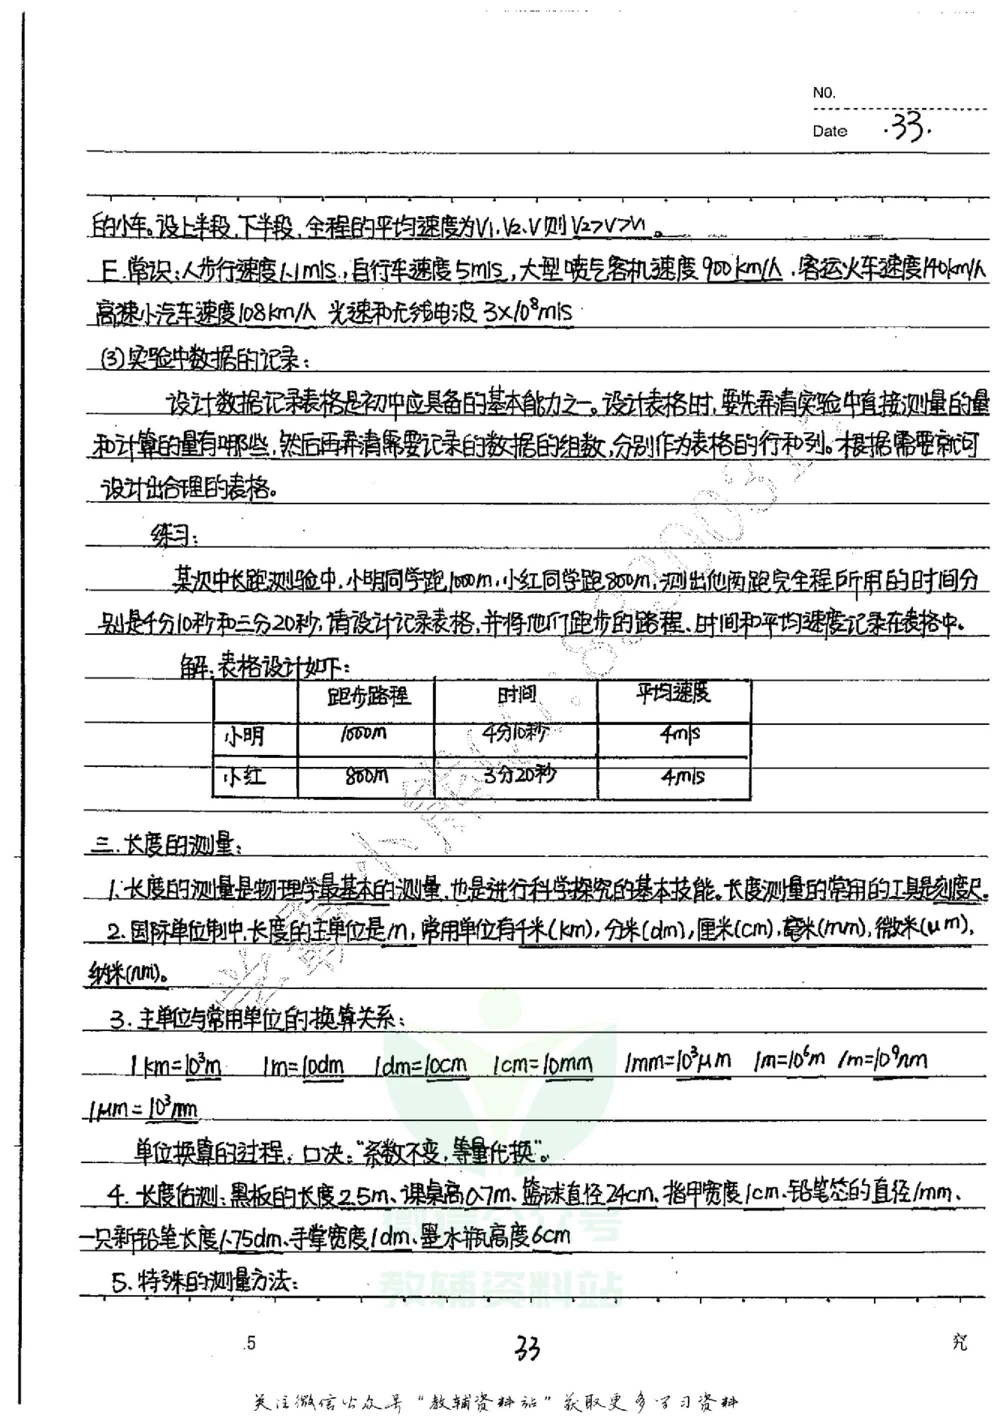 NO.
Date .33.
的小车。设上半段、下半段、全程的平均速度为V1、V2、V则V2>V>V1。
E.常识:人步行速度1.1m/s,自行车速度5m/s,大型喷气客机速度900km/h、客运火车速度140km/h
高速小汽车速度108km/h 光速和无线电波 3×10⁸m/s
(3)实验中数据的记录:
设计数据记录表格是初中应具备的基本能力之一。设计表格时,要先弄清实验中直接测量的量
和计算的量有哪些,然后再弄清需要记录的数据的组数,分别作为表格的行和列。根据需要就可
设计出合理的表格。
练习:
某次中长跑测验中,小明同学跑1000m,小红同学跑800m,测出他两跑完全程所用的时间分
别是4分10秒和三分20秒,请设计记录表格,并将他们跑步的路程、时间和平均速度记录在表格中。
解:表格设计如下:
跑步路程 时间 平均速度
小明 1000m 4分10秒 4m/s
小红 800m 3分20秒 4m/s
三.长度的测量:
1.长度的测量是物理学最基本的测量,也是进行科学探究的基本技能。长度测量的常用的工具是刻度尺。
2.国际单位制中,长度的主单位是m,常用单位有千米(km),分米(dm),厘米(cm),毫米(mm),微米(μm),
纳米(nm)。
3.主单位与常用单位的换算关系:
1km=10³m 1m=10dm 1dm=10cm 1cm=10mm 1mm=10³μm 1m=10⁶m 1m=10⁹nm
1μm=10³nm
单位换算的过程:口决:“系数不变,等量代换”。
4.长度估测:黑板的长度2.5m、课桌高0.7m、篮球直径24cm、指甲宽度1cm、铅笔芯的直径1mm、
一只新铅笔长度1.75dm、手掌宽度1dm、墨水瓶高度6cm
5.特殊的测量方法:
教辅资料站
.5 33 究
关注微信公众号“教辅资料站”获取更多学习资料